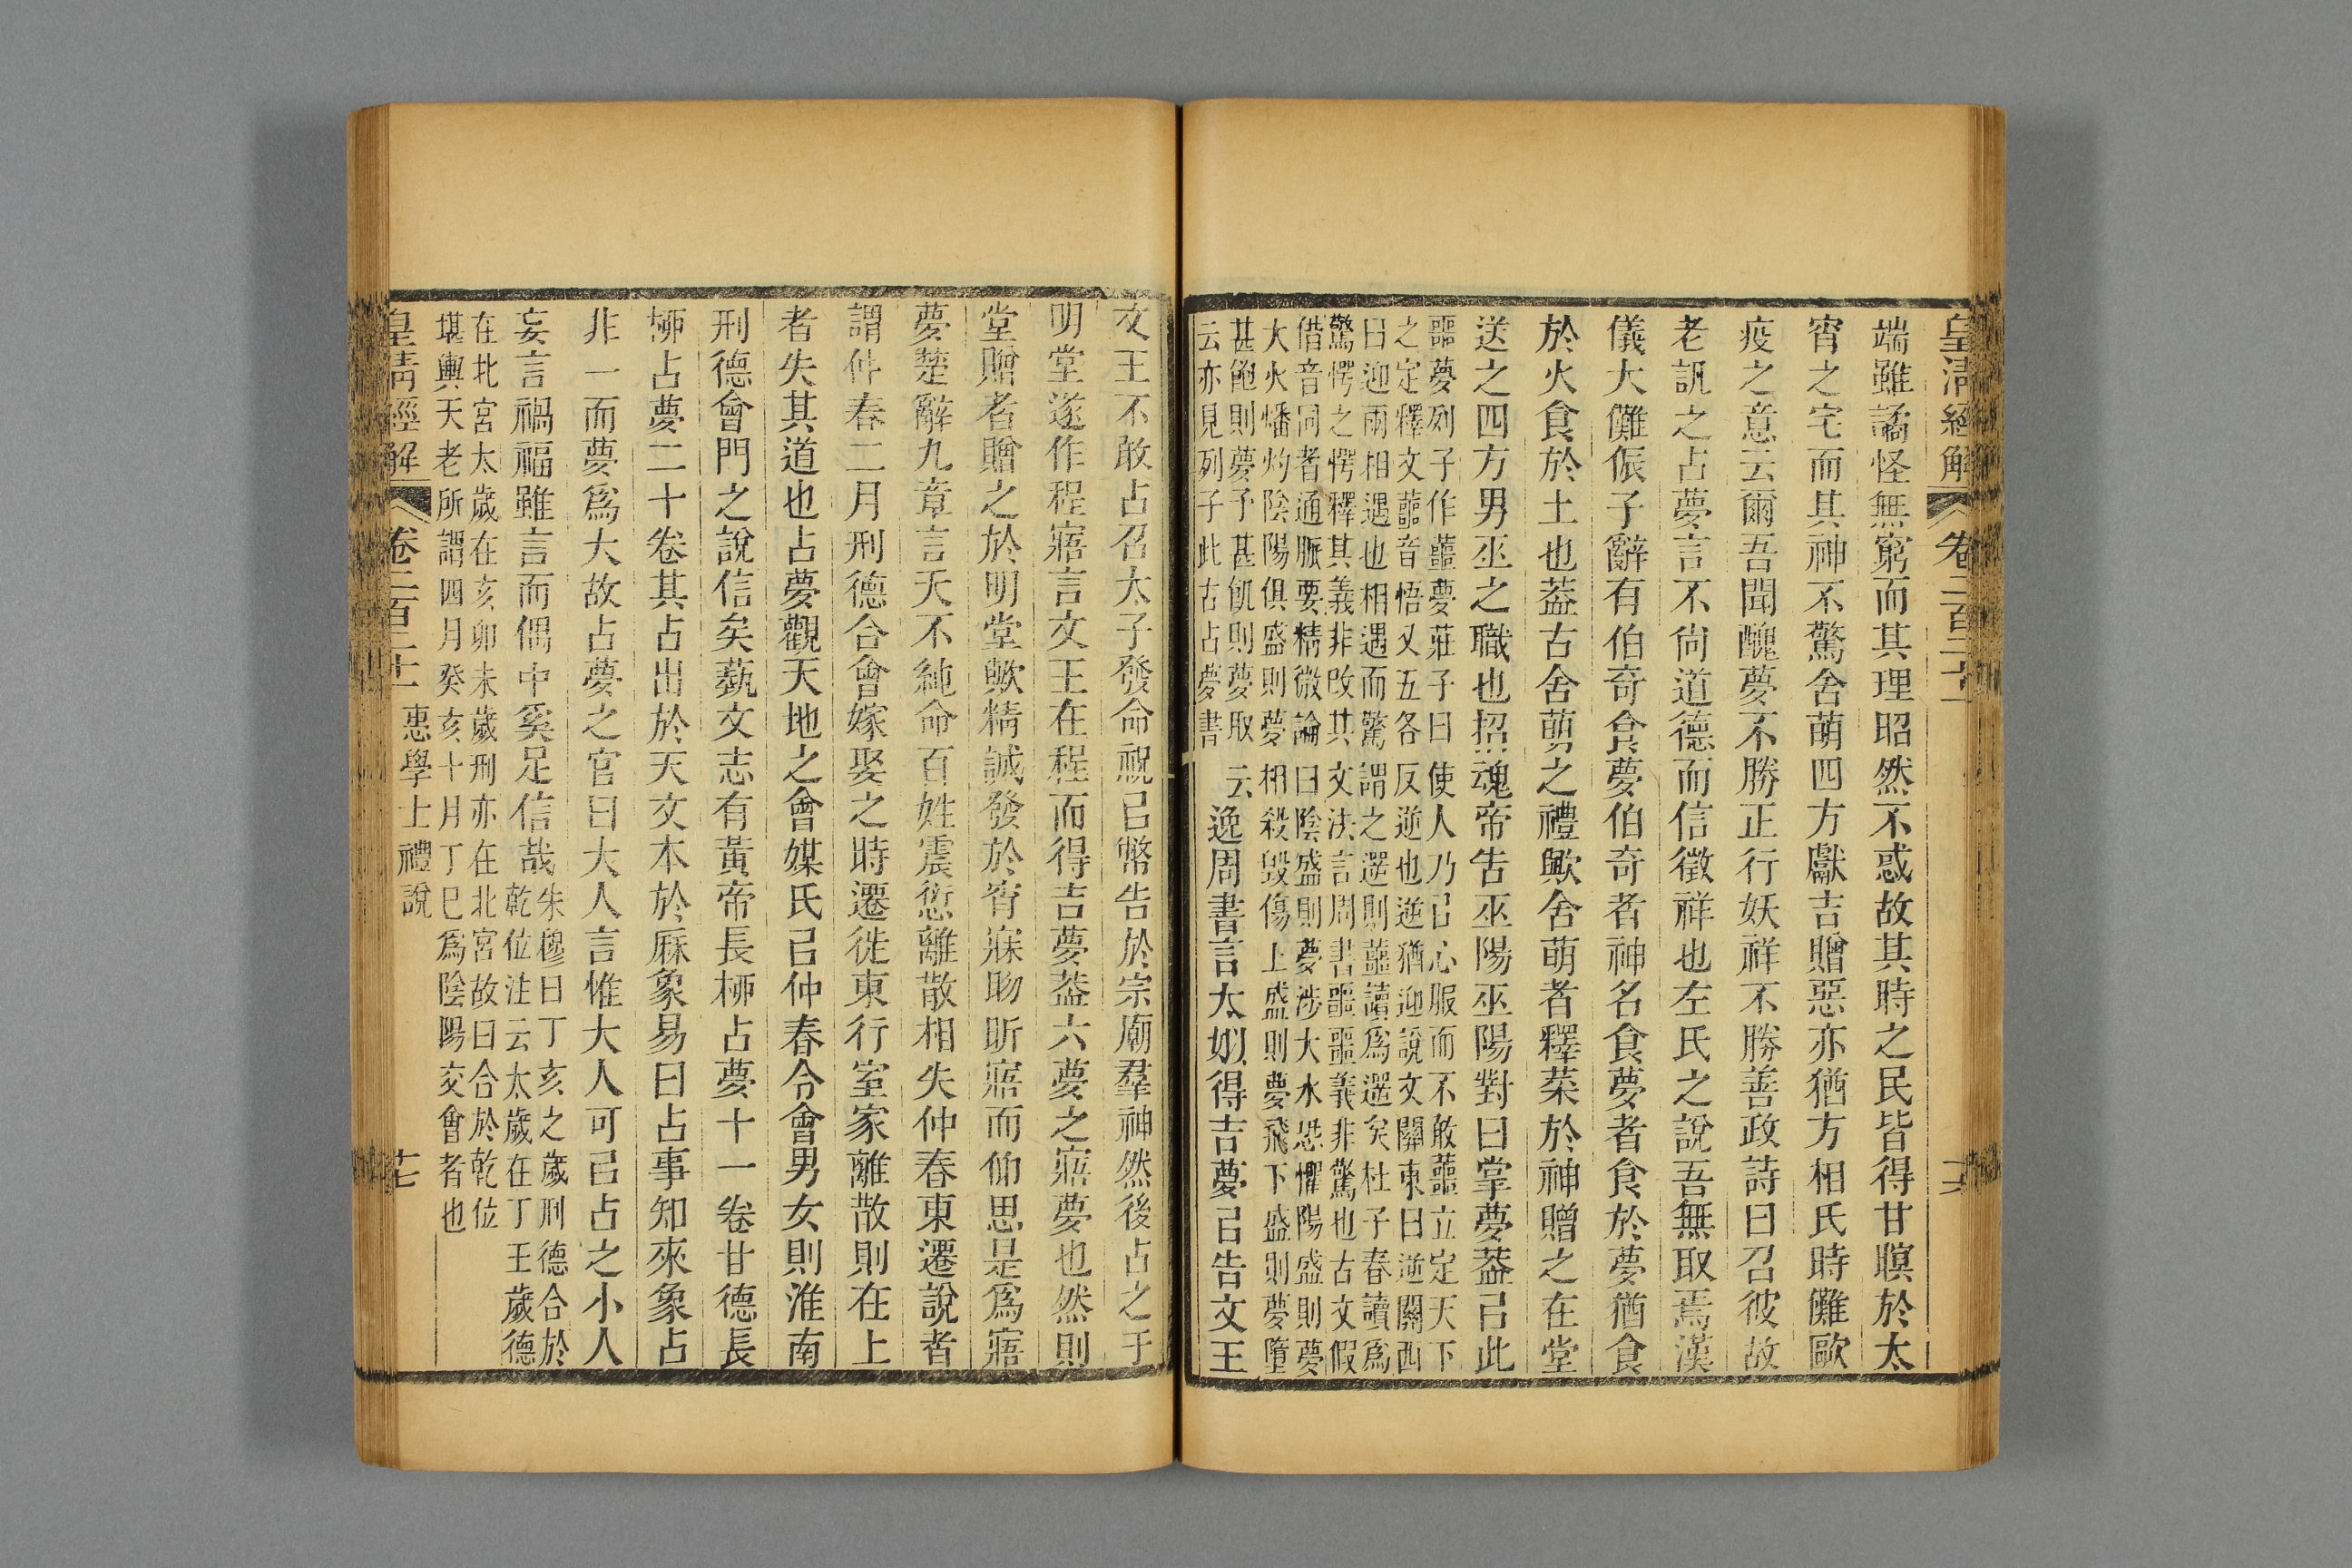 皇清經解 卷二百二十一 十六
端雖譎怪無窮而其理昭然不惑故其時之民皆得甘瞑於太
宵之宅而其神不驚舍萌四方獻吉贈惡亦猶方相氏時儺毆
疫之意云爾吾聞醜夢不勝正行妖祥不勝善政詩曰召彼故
老訊之占夢言不尙道德而信徵祥也左氏之說吾無取焉漢
儀大儺侲子辭有伯奇食夢伯奇者神名食夢者食於夢猶食
於火食於土也葢古舍萌之禮歟舍萌者釋菜於神贈之在堂
送之四方男巫之職也招魂帝告巫陽巫陽對曰掌夢葢㠯此
噩夢列子作蘁夢莊子曰使人乃㠯心服而不敢蘁立定天下
之定釋文蘁音悟又五各反逆也逆猶迎說文關東曰逆關西
曰迎兩相遇也相遇而驚謂之遻則蘁讀爲遻矣杜子春讀爲
驚愕之愕釋其義非改其文法言周書噩噩義非驚也古文假
借音同者通脈要精微論曰陰盛則夢涉大水恐懼陽盛則夢
大火燔灼陰陽俱盛則夢相殺毀傷上盛則夢飛下盛則夢墮
甚飽則夢予甚飢則夢取云
云亦見列子此古占夢書
逸周書言太姒得吉夢㠯告文王
文王不敢占召太子發命祝㠯幣告於宗廟羣神然後占之于
明堂遂作程寤言文王在程而得吉夢葢六夢之寤夢也然則
堂贈者贈之於明堂歟精誠發於宵寐昒昕寤而仰思是爲寤
夢楚辭九章言天不純命百姓震愆離散相失仲春東遷說者
謂仲春二月刑德合會嫁娶之時遷徙東行室家離散則在上
者失其道也占夢觀天地之會媒氏㠯仲春令會男女則淮南
刑德會門之說信矣蓺文志有黃帝長桺占夢十一卷甘德長
桺占夢二十卷其占出於天文本於厤象易曰占事知來象占
非一而夢爲大故占夢之官曰大人言惟大人可㠯占之小人
妄言禍福雖言而偶中奚足信哉
朱穆曰丁亥之歲刑德合於
乾位注云太歲在丁壬歲德
在北宮太歲在亥卯未歲刑亦在北宮故曰合於乾位
堪輿天老所謂四月癸亥十月丁巳爲陰陽交會者也
皇清經解 卷二百二十一 惠學士禮說 十七